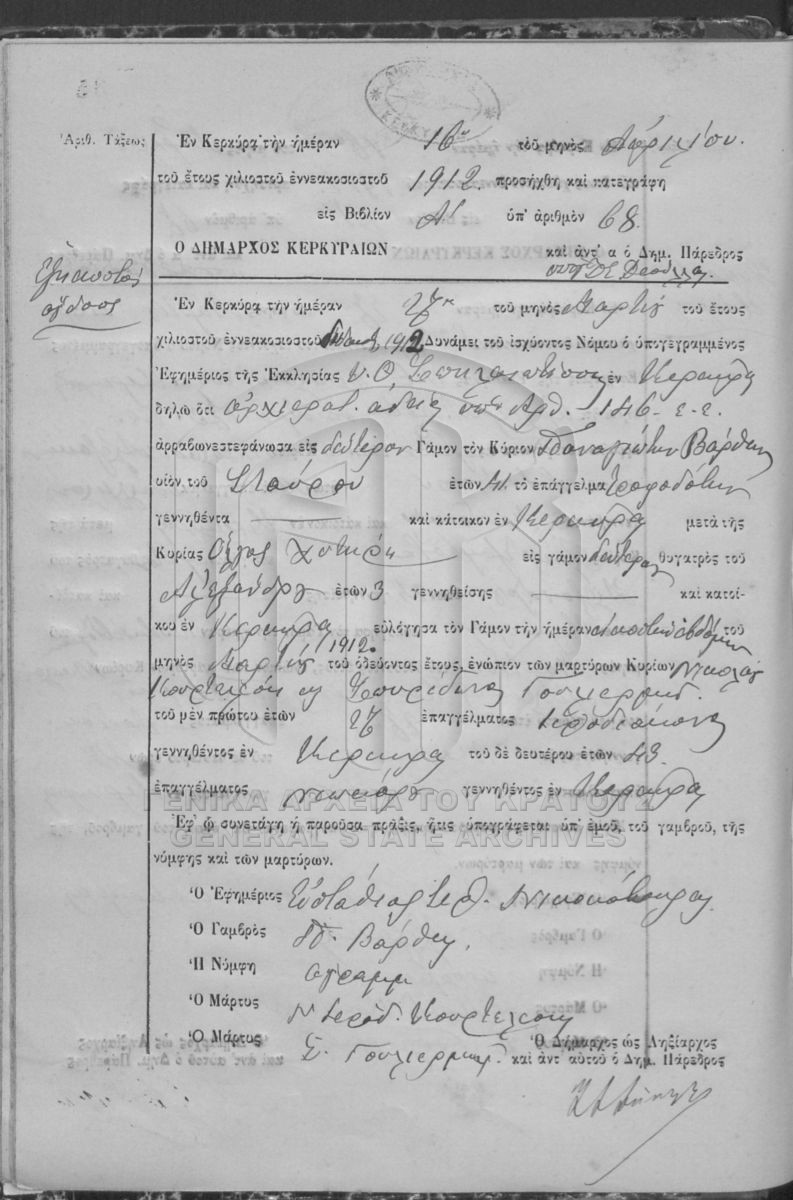 Ἀριθ. Τάξεως
Ἐν Κερκύρᾳ τὴν ἡμέραν 16ην τοῦ μηνὸς Ἀπριλίου.
τοῦ ἔτους χιλιοστοῦ ἐννεακοσιοστοῦ 1912. προσήχθη καὶ κατεγράφη
εἰς Βιβλίον Α΄ ὑπ' ἀριθμὸν 68.
Ο ΔΗΜΑΡΧΟΣ ΚΕΡΚΥΡΑΙΩΝ καὶ ἀντ' α ὁ Δημ. Πάρεδρος
Ἑξηκοστὸς
ὄγδοος
Ἐν Κερκύρᾳ τὴν ἡμέραν 27ην τοῦ μηνὸς Μαρτίου τοῦ ἔτους
χιλιοστοῦ ἐννεακοσιοστοῦ 1912 Δυνάμει τοῦ ἰσχύοντος Νόμου ὁ ὑπογεγραμμένος
Ἐφημέριος τῆς Ἐκκλησίας ἐν Κερκύρᾳ
δηλῶ ὅτι ἀρχιερατ. ἀδείᾳ ὑπ' Ἀρθ. 146 - ε - ε.
ἀρραβωνεστεφάνωσα εἰς δεύτερον Γάμον τὸν Κύριον Παναγιώτην Βάρθην
υἱὸν τοῦ Σταύρου ἐτῶν 41. τὸ ἐπάγγελμα τροφοδότην
γεννηθέντα καὶ κάτοικον ἐν Κερκύρᾳ μετὰ τῆς
Κυρίας Ὄλγας εἰς γάμον δεύτερον θυγατρὸς τοῦ
Ἀλεξάνδρου ἐτῶν 3 γεννηθείσης καὶ κατοί-
κου ἐν Κερκύρᾳ εὐλόγησα τὸν Γάμον τὴν ἡμέραν εἰκοστὴν ἑβδόμην τοῦ
μηνὸς Μαρτίου 1912. τοῦ ὁδεύοντος ἔτους, ἐνώπιον τῶν μαρτύρων Κυρίων Νικολάου
Κουρτελέση κ Σπυρίδωνος Γουλιέρμου.
τοῦ μὲν πρώτου ἐτῶν 27 ἐπαγγέλματος ἱεροδιάκονος
γεννηθέντος ἐν Κερκύρᾳ τοῦ δὲ δευτέρου ἐτῶν 43.
ἐπαγγέλματος γεννηθέντος ἐν Κερκύρᾳ
ΓΕΝΙΚΑ ΑΡΧΕΙΑ ΤΟΥ ΚΡΑΤΟΥΣ
Ἐφ' ᾧ συνετάγη ἡ παροῦσα πρᾶξις, ἥτις ὑπογράφεται ὑπ' ἐμοῦ, τοῦ γαμβροῦ, τῆς
GENERAL STATE ARCHIVES
νύμφης καὶ τῶν μαρτύρων.
Ὁ Ἐφημέριος Εὐστάθιος
Ὁ Γαμβρὸς Π. Βάρθης.
Ἡ Νύμφη ἀγράμμ
Ὁ Μάρτυς Ν Ἱεροδ. Κουρτελέσης
Ὁ Μάρτυς Σ. Γουλιέρμος. Ὁ Δήμαρχος ὡς Ληξίαρχος
καὶ ἀντ' αὐτοῦ ὁ Δημ. Πάρεδρος